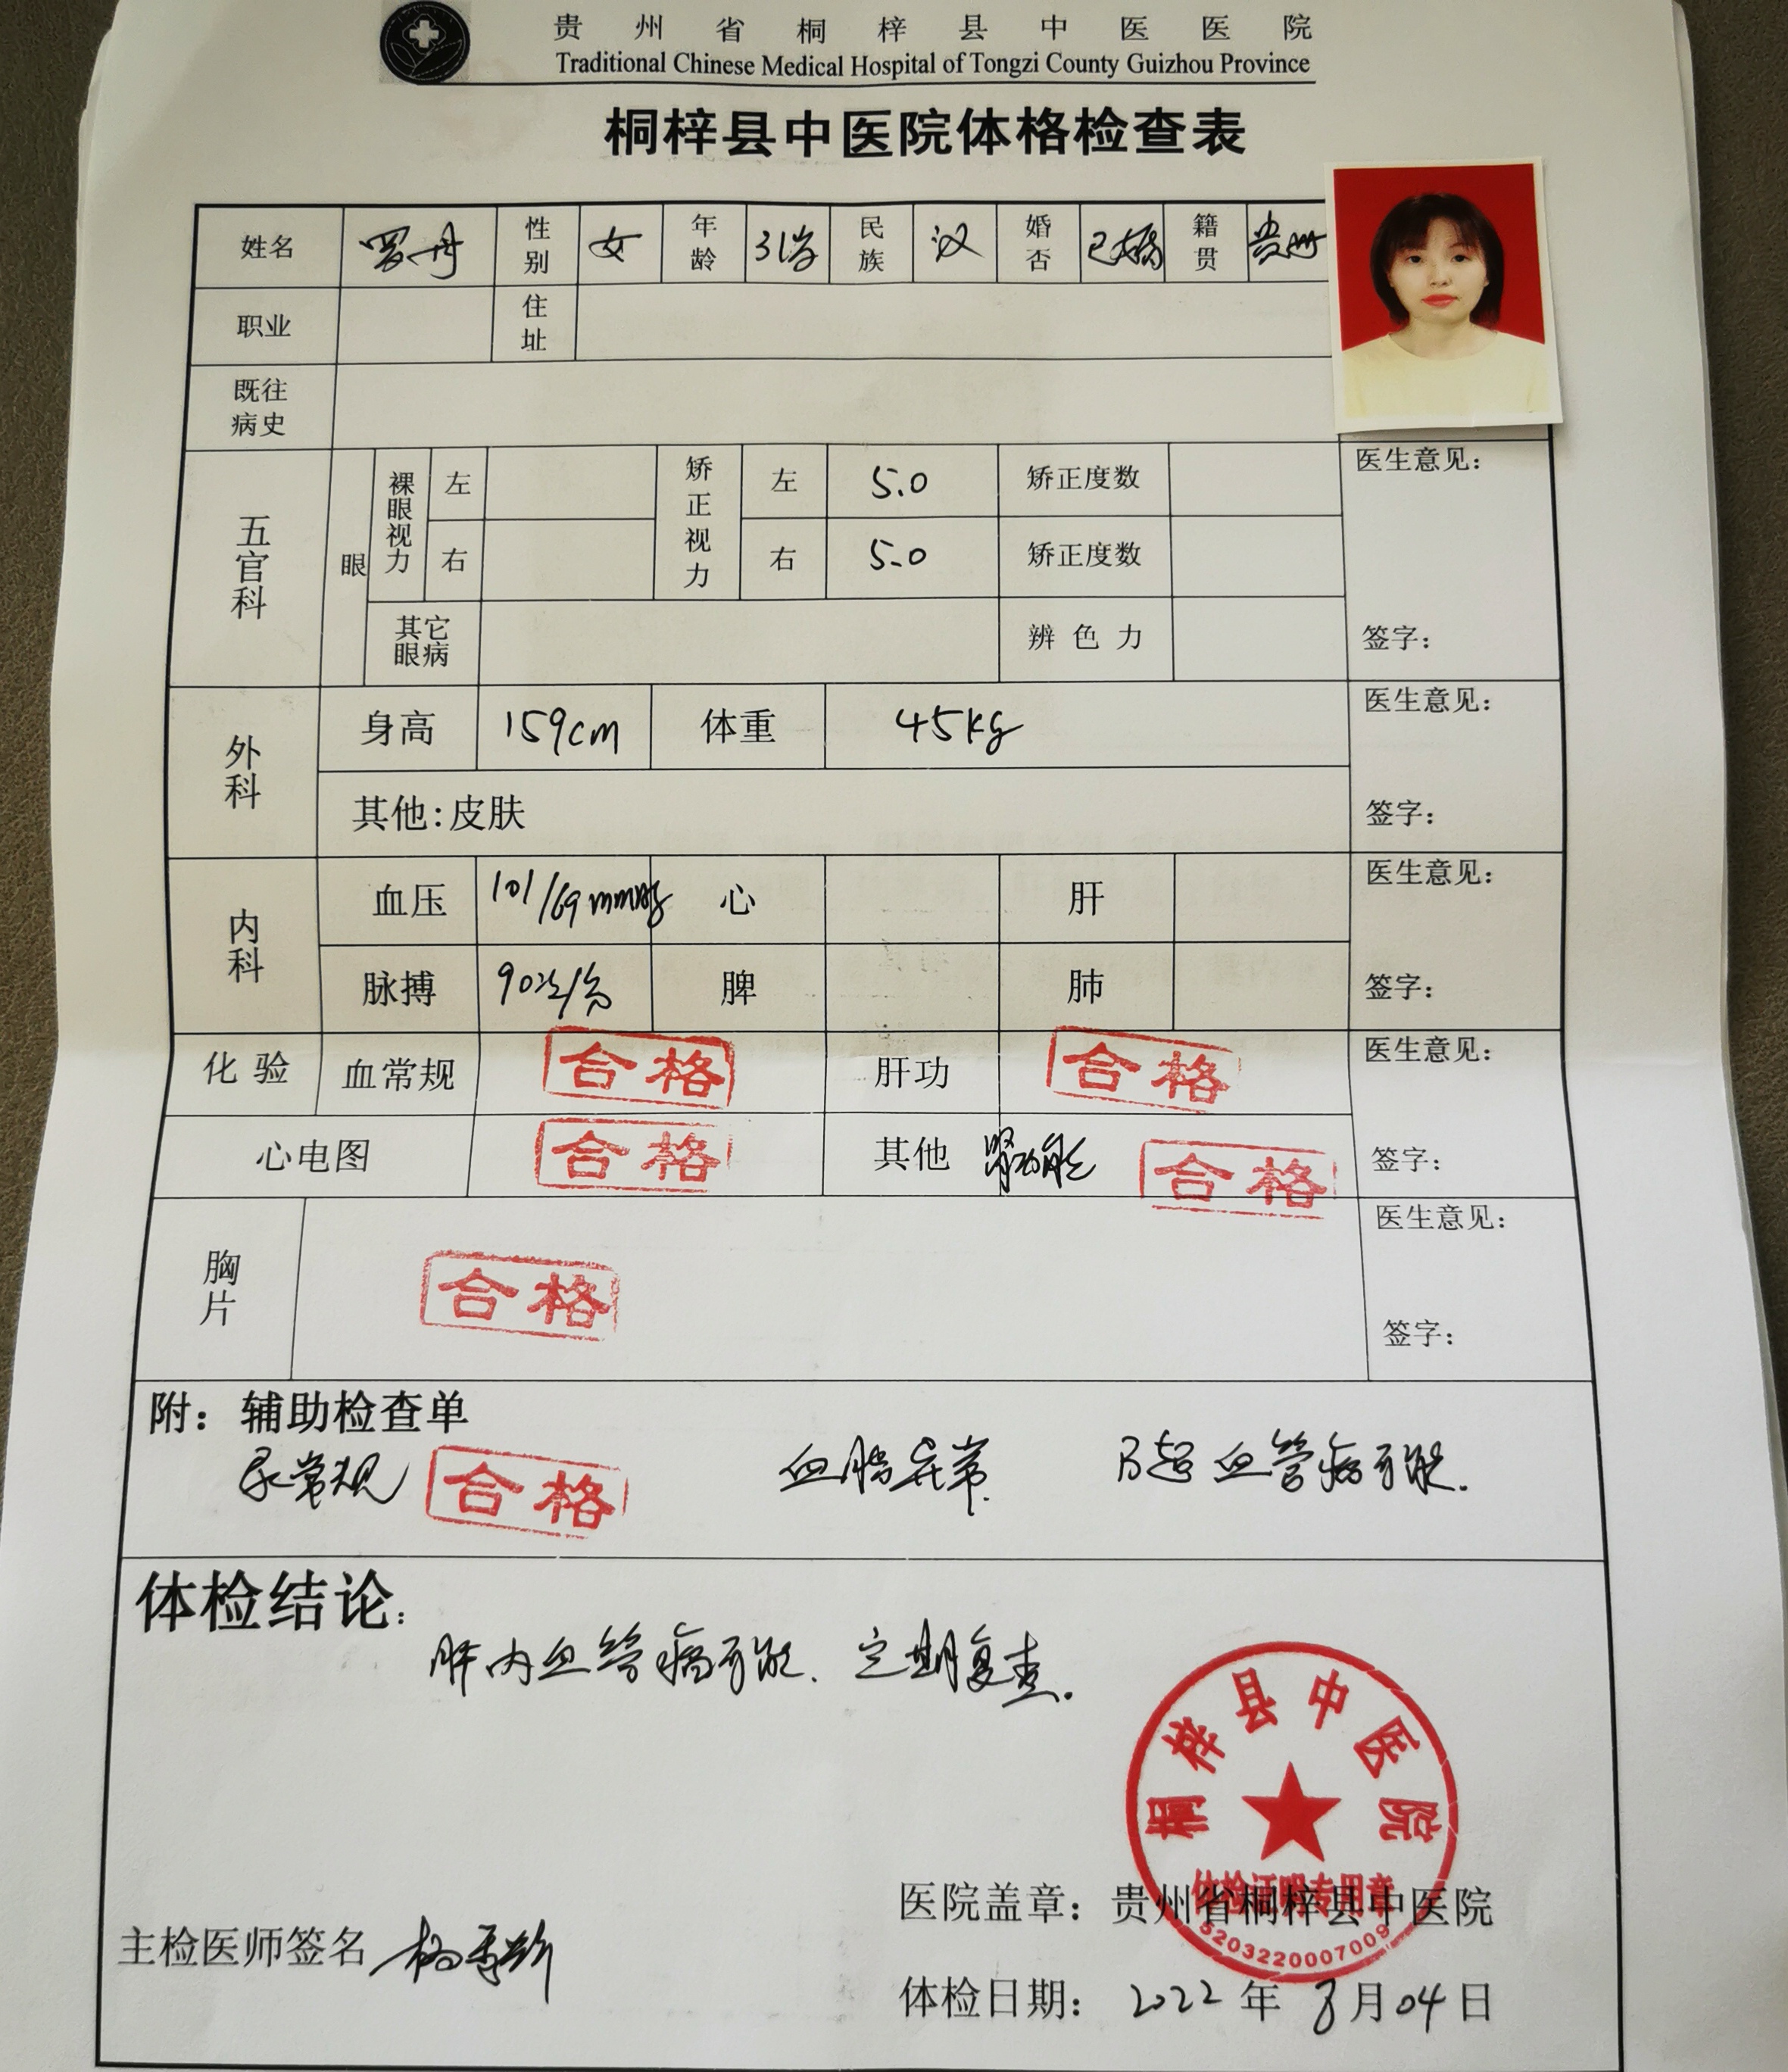 贵州省桐梓县中医医院
Traditional Chinese Medical Hospital of Tongzi County Guizhou Province
桐梓县中医院体格检查表
姓名 罗丹 性别 女 年龄 31岁 民族 汉 婚否 已婚 籍贯 贵州
职业 住址
既往病史
五官科 眼 裸眼视力 左 矫正视力 左 5.0 矫正度数 医生意见:
右 右 5.0 矫正度数
其它眼病 辨色力 签字:
外科 身高 159cm 体重 45kg 医生意见:
其他:皮肤 签字:
内科 血压 101/69mmHg 心 肝 医生意见:
脉搏 90次/分 脾 肺 签字:
化验 血常规 合格 肝功 合格 医生意见:
心电图 合格 其他 肾功能 合格 签字:
胸片 合格 医生意见:
签字:
附:辅助检查单
尿常规 合格 血脂异常 B超血管瘤可能.
体检结论:
肝内血管瘤可能、定期复查.
桐梓县中医院
体检证明专用章
5203220007009
医院盖章:贵州省桐梓县中医院
主检医师签名
体检日期: 2022年8月04日